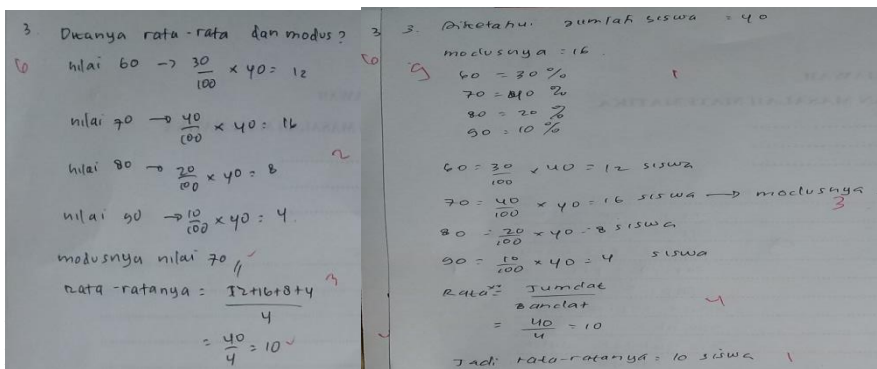 3. Ditanya rata-rata dan modus?
6
nilai 60 -> 30/100 x 40 = 12
nilai 70 -> 40/100 x 40 = 16
2
nilai 80 -> 20/100 x 40 = 8
nilai 90 -> 10/100 x 40 = 4
modusnya nilai 70 //
Rata-ratanya = 12+16+8+4 / 4
3
= 40/4 = 10
3 3. Diketahui. Jumlah siswa = 40
modusnya = 16.
9
60 = 30 %
1
70 = 40 %
80 = 20 %
90 = 10 %
60 = 30/100 x 40 = 12 siswa
70 = 40/100 x 40 = 16 siswa -> modusnya
3
80 = 20/100 x 40 = 8 siswa
90 = 10/100 x 40 = 4 siswa
Rata²= Jumdat / Bandat
4
= 40/4 = 10
Jadi rata-ratanya = 10 siswa
1